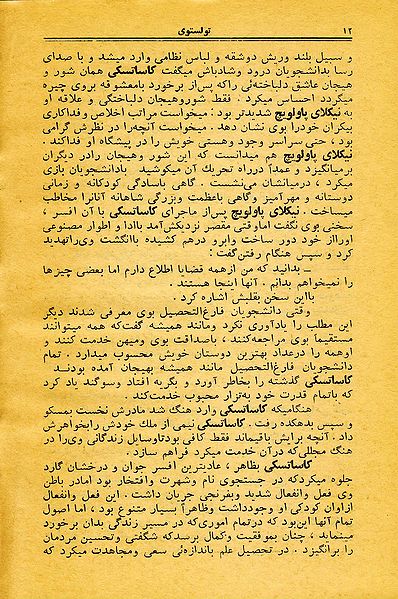 ۱۲ تولستوی
و سبیل بلند وریش دوشقه و لباس نظامی وارد میشد و با صدای
رسا بدانشجویان درود وشادباش میگفت کاساتسکی همان شور و
هیجان عاشق دلباخته‌ئی راکه پس‌از برخورد بامعشوقه بروی چیره
میگردد احساس میکرد . فقط شوروهیجان دلباختگی و علاقه او
به نیکلای پاولویچ شدیدتر بود : میخواست مراتب اخلاص و فداکاری
بیکران خودرا بوی نشان دهد . میخواست آنچه‌را در نظرش گرامی
بود ، حتی سراسر وجود وهستی خویش را در پیشگاه او فداکند .
نیکلای پاولویچ هم میدانست که این شور وهیجان رادر دیگران
برمیانگیزد و عمداً درراه تحریك آن میکوشید بادانشجویان بازی
میکرد ، درمیانشان می‌نشست . گاهی باسادگی کودکانه و زمانی
دوستانه و مهرآمیز وگاهی باعظمت وبزرگی شاهانه آنانرا مخاطب
میساخت . نیکلای پاولویچ پس‌از ماجرای کاساتسکی با آن افسر ،
سخنی بوی نگفت اماوقتی مقصر نزدیکش‌آمد باادا و اطوار مصنوعی
اورااز خود دور ساخت وابرو درهم کشیده باانگشت وی‌راتهدید
کرد و سپس هنگام رفتن‌گفت :
ــ بدانید که من ازهمه قضایا اطلاع دارم اما بعضی چیزها
را نمیخواهم بدانم . آنها اینجا هستند .
بااین سخن بقلبش اشاره کرد .
وقتی دانشجویان فارغ‌التحصیل بوی معرفی شدند دیگر
این مطلب را یادآوری نکرد ومانند همیشه گفت‌که همه میتوانند
مستقیما بوی مراجعه‌کنند ، باصداقت بوی ومیهن خدمت کنند و
اوهمه را درعداد بهترین دوستان خویش محسوب میدارد . تمام
دانشجویان فارغ‌التحصیل مانند همیشه بهیجان آمده بودند
کاساتسکی گذشته را بخاطر آورد و بگریه افتاد وسوگند یاد کرد
که باتمام قدرت خود به‌تزار محبوب خدمت‌کند .
هنگامیکه کاساتسکی وارد هنگ شد مادرش نخست بمسکو
و سپس بدهکده رفت . کاساتسکی نیمی از ملك خودش رابخواهرش
داد . آنچه برایش باقیماند فقط کافی بودتاوسایل زندگانی وی‌را در
هنگ مجللی‌که درآن خدمت میکرد فراهم سازد .
کاساتسکی بظاهر ، عادیترین افسر جوان و درخشان گارد
جلوه میکردکه در جستجوی نام وشهرت وافتخار بود امادر باطن
وی فعل وانفعال شدید وبفرنجی جریان داشت . این فعل وانفعال
ازاوان کودکی او وجودداشت وظاهراً بسیار متنوع بود ، اما اصول
تمام آنها این‌بود که درتمام اموری‌که در مسیر زندگی بدان برخورد
مینماید ، چنان بموفقیت وکمال برسدکه شگفتی وتحسین مردمان
را برانگیزد . در تحصیل علم باندازه‌ئی سعی ومجاهدت میکرد که